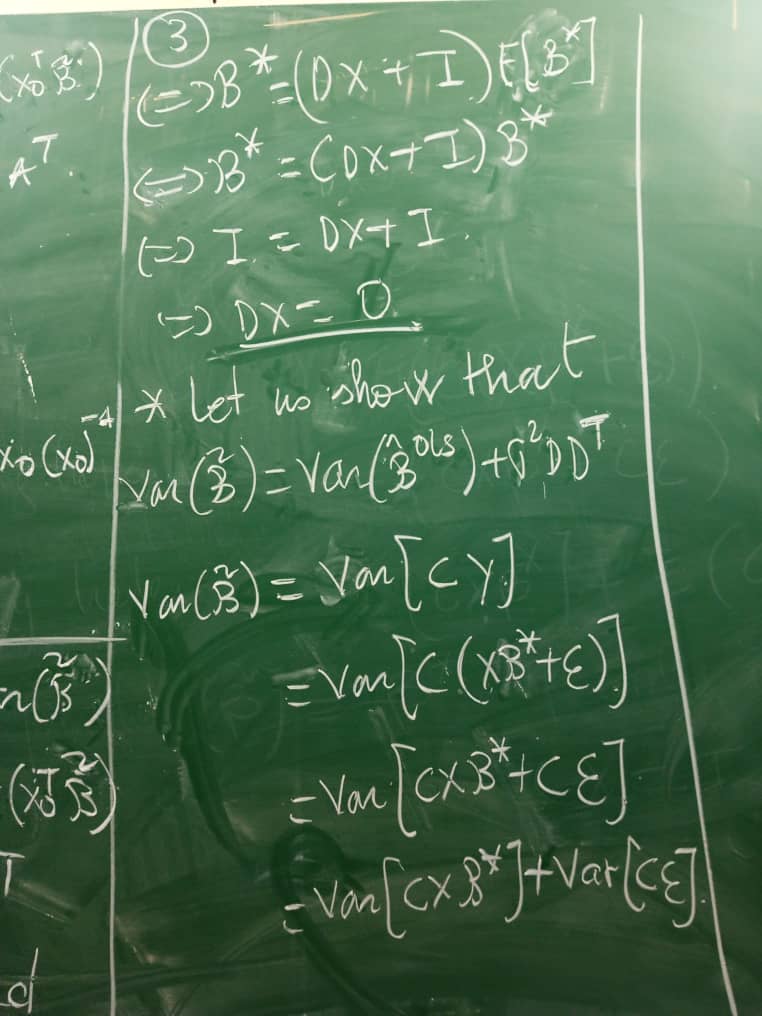 (x₀ᵀ B̃)
Aᵀ.
x₀(x₀)⁻¹
(B̃)
(x₀ᵀ B̃)
T
d
③
(=> B* = (DX + I) E[B*]
<=> B* = (DX + I) B*
(=> I. = DX + I.
=> DX = 0
* Let us show that
Var(B̃) = Var(B̂ᴼᴸˢ) + σ²DDᵀ
Var(B̃) = Var[CY]
= Var[C(XB* + ε)]
= Var[CXB* + Cε]
= Var[CXB*] + Var[Cε].